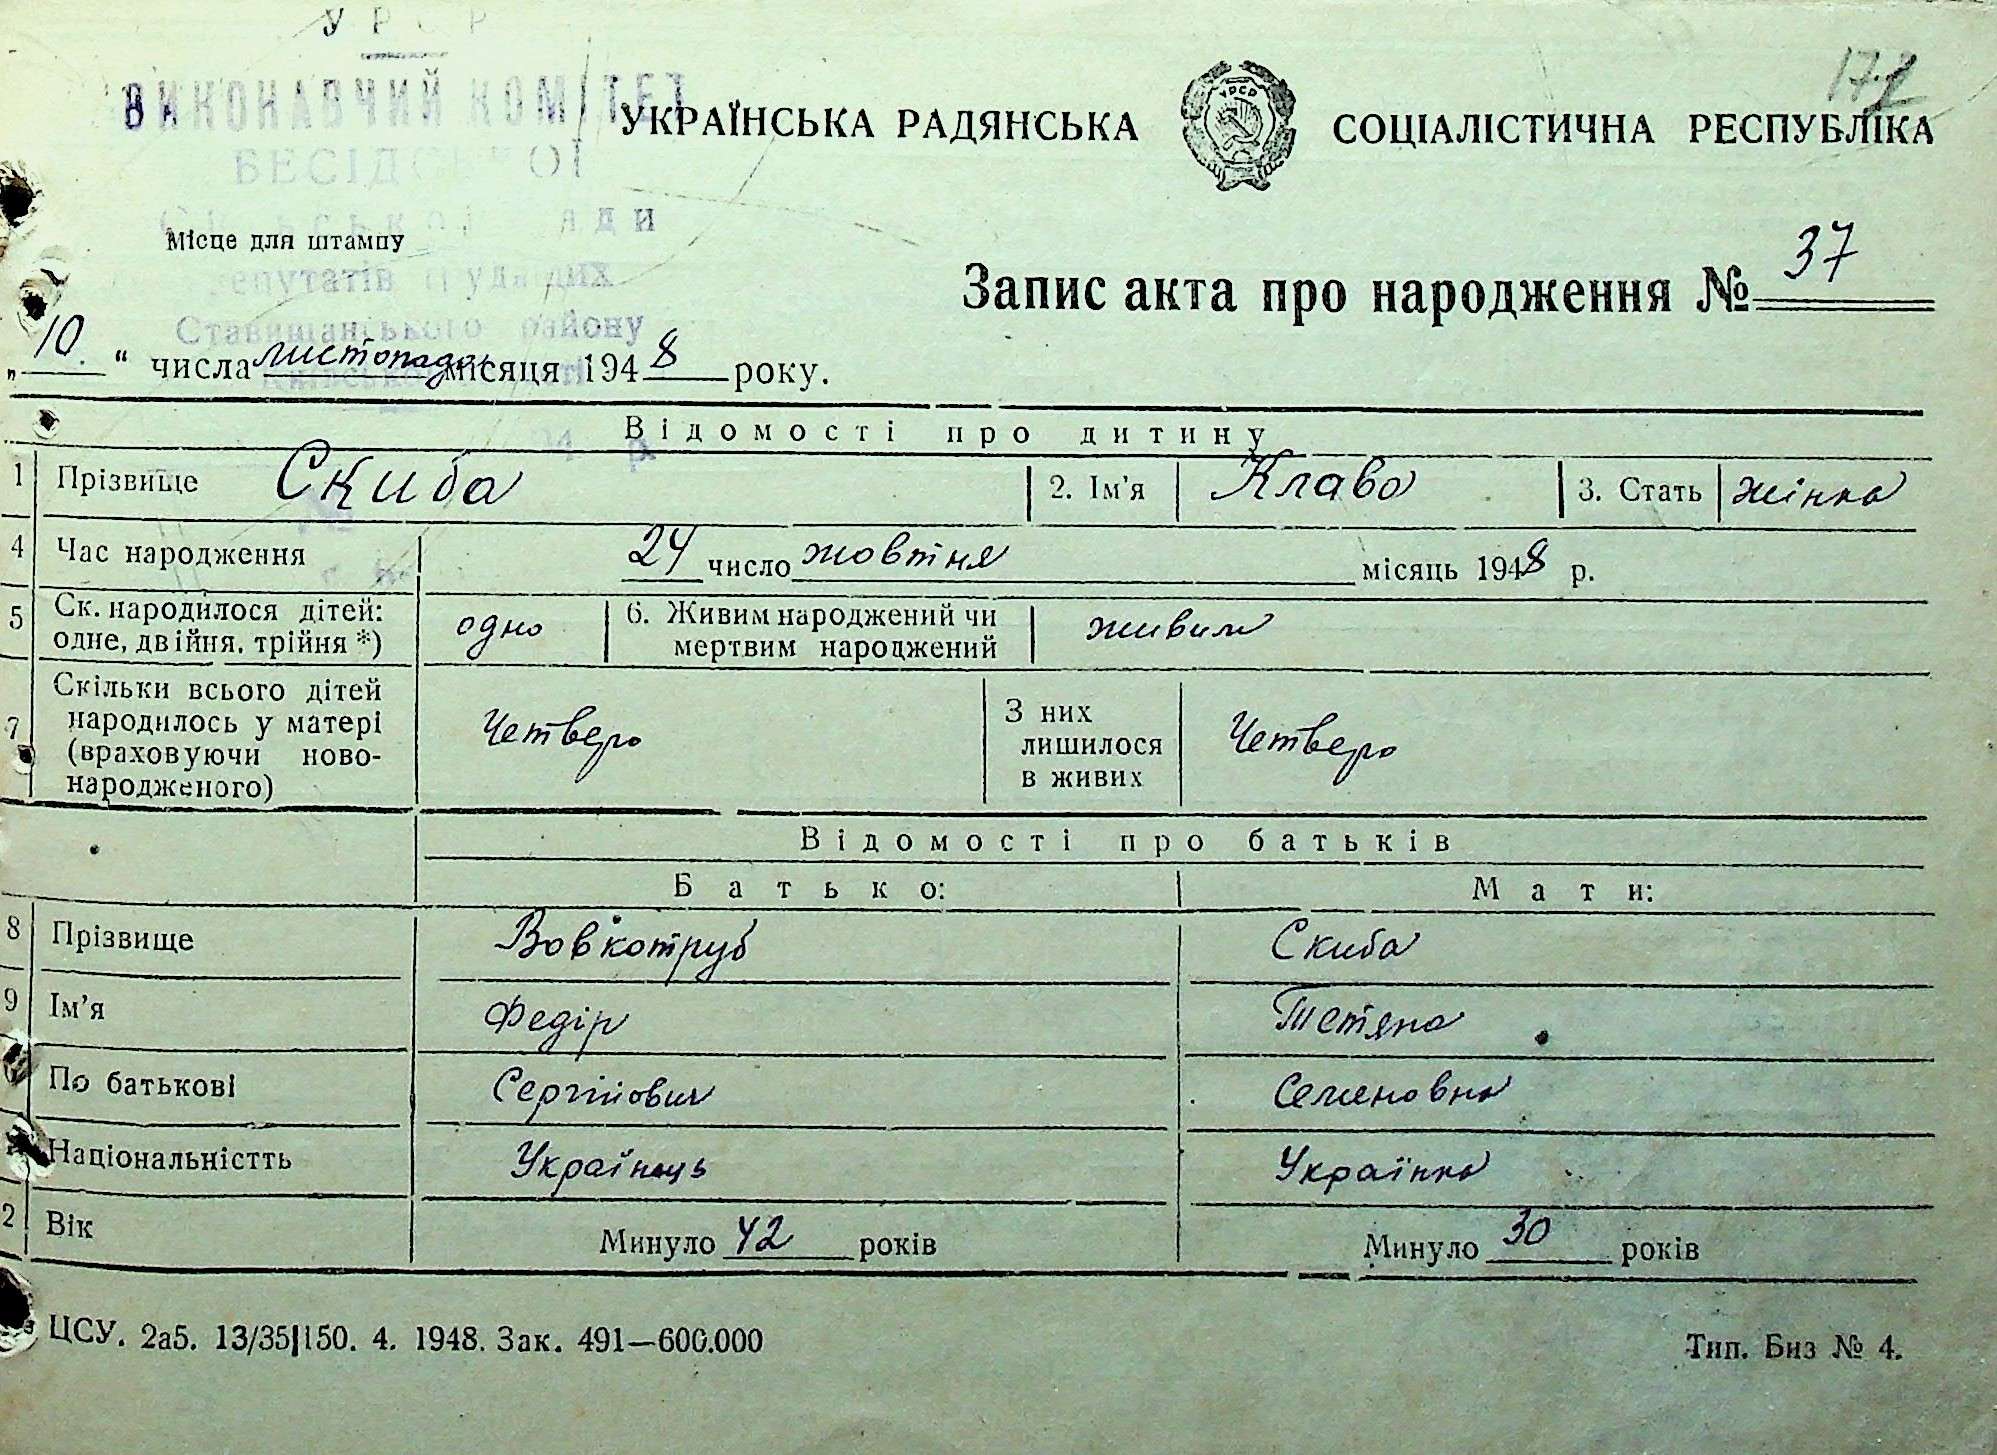 УРСР
ВИКОНАВЧИЙ КОМІТЕТ
БЕСІДСЬКОЇ
Сільської ради
депутатів трудящих
Ставищанського району
Київської області
172
УКРАЇНСЬКА РАДЯНСЬКА СОЦІАЛІСТИЧНА РЕСПУБЛІКА
Місце для штампу
Запис акта про народження № 37
„10.“ числа листопада місяця 1948 року.
Відомості про дитину
1 Прізвище Скиба 2. Ім'я Клава 3. Стать жінка
4 Час народження 24 число жовтня місяць 1948 р.
5 Ск. народилося дітей: одно 6. Живим народжений чи живим
одне, двійня, трійня *) мертвим народжений
7 Скільки всього дітей З них
народилось у матері Четверо лишилося Четверо
(враховуючи ново- в живих
народженого)
Відомості про батьків
Батько: Мати:
8 Прізвище Вовкотруб Скиба
9 Ім'я Федір Тетяна
По батькові Сергійович Семеновна
Національністть Українець Українка
2 Вік Минуло 42 років Минуло 30 років
ЦСУ. 2а5. 13/35|150. 4. 1948. Зак. 491—600.000 Тип. Биз № 4.